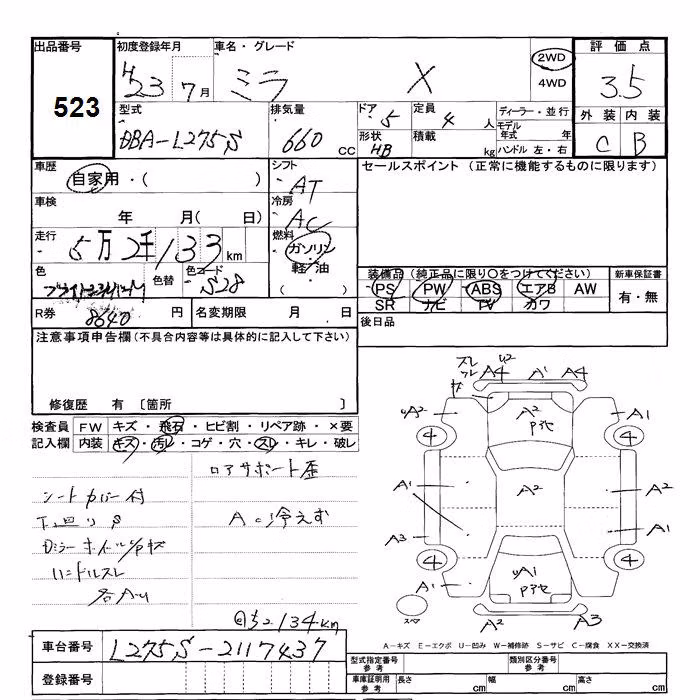 出品番号 初度登録年月 車名・グレード 評価点
523 H23 7月 ミラ X 2WD 4WD 3.5
型式 排気量 ドア 定員 ディーラー・並行 外装 内装
DBA-L275S 660 CC 5 4 人 モデル年式 年 C B
形状 HB 積載 kg ハンドル 左・右
車歴 シフト セールスポイント (正常に機能するものに限ります)
自家用・( ) AT
車検 冷房
年 月( 日) AC
走行 燃料
5万2千133km ガソリン
色 色替 色コード 軽油 装備品 (純正品に限り○をつけてください) 新車保証書
S28 ( ) PS PW ABS エアB AW 有・無
SR ナビ TV カワ
R券 8640 円 名変期限 月 日 後日品
注意事項申告欄(不具合内容等は具体的に記入して下さい)
修復歴 有 [箇所 ]
検査員 FW キズ・飛石・ヒビ割・リペア跡・×要
記入欄 内装 キズ・汚レ・コゲ・穴・スレ・キレ・破レ
ロアサポート歪
シートカバー付
下廻りS
A.C冷えず
ハンドルスレ
各AU
52.134km
スレ U2 A4 A1 A4
キズ
A2 A2 A1
4 4
A1 A2 A2
A3 A1
4 4
A1 A1
スペア A2 A3
A-キズ E-エクボ U-凹み W-補修跡 S-サビ C-腐食 XX-交換済
車台番号 L275S-2117437
型式指定番号 参考 類別区分番号 参考
登録番号 車庫証明用 参考 長さ cm 幅 cm 高さ cm